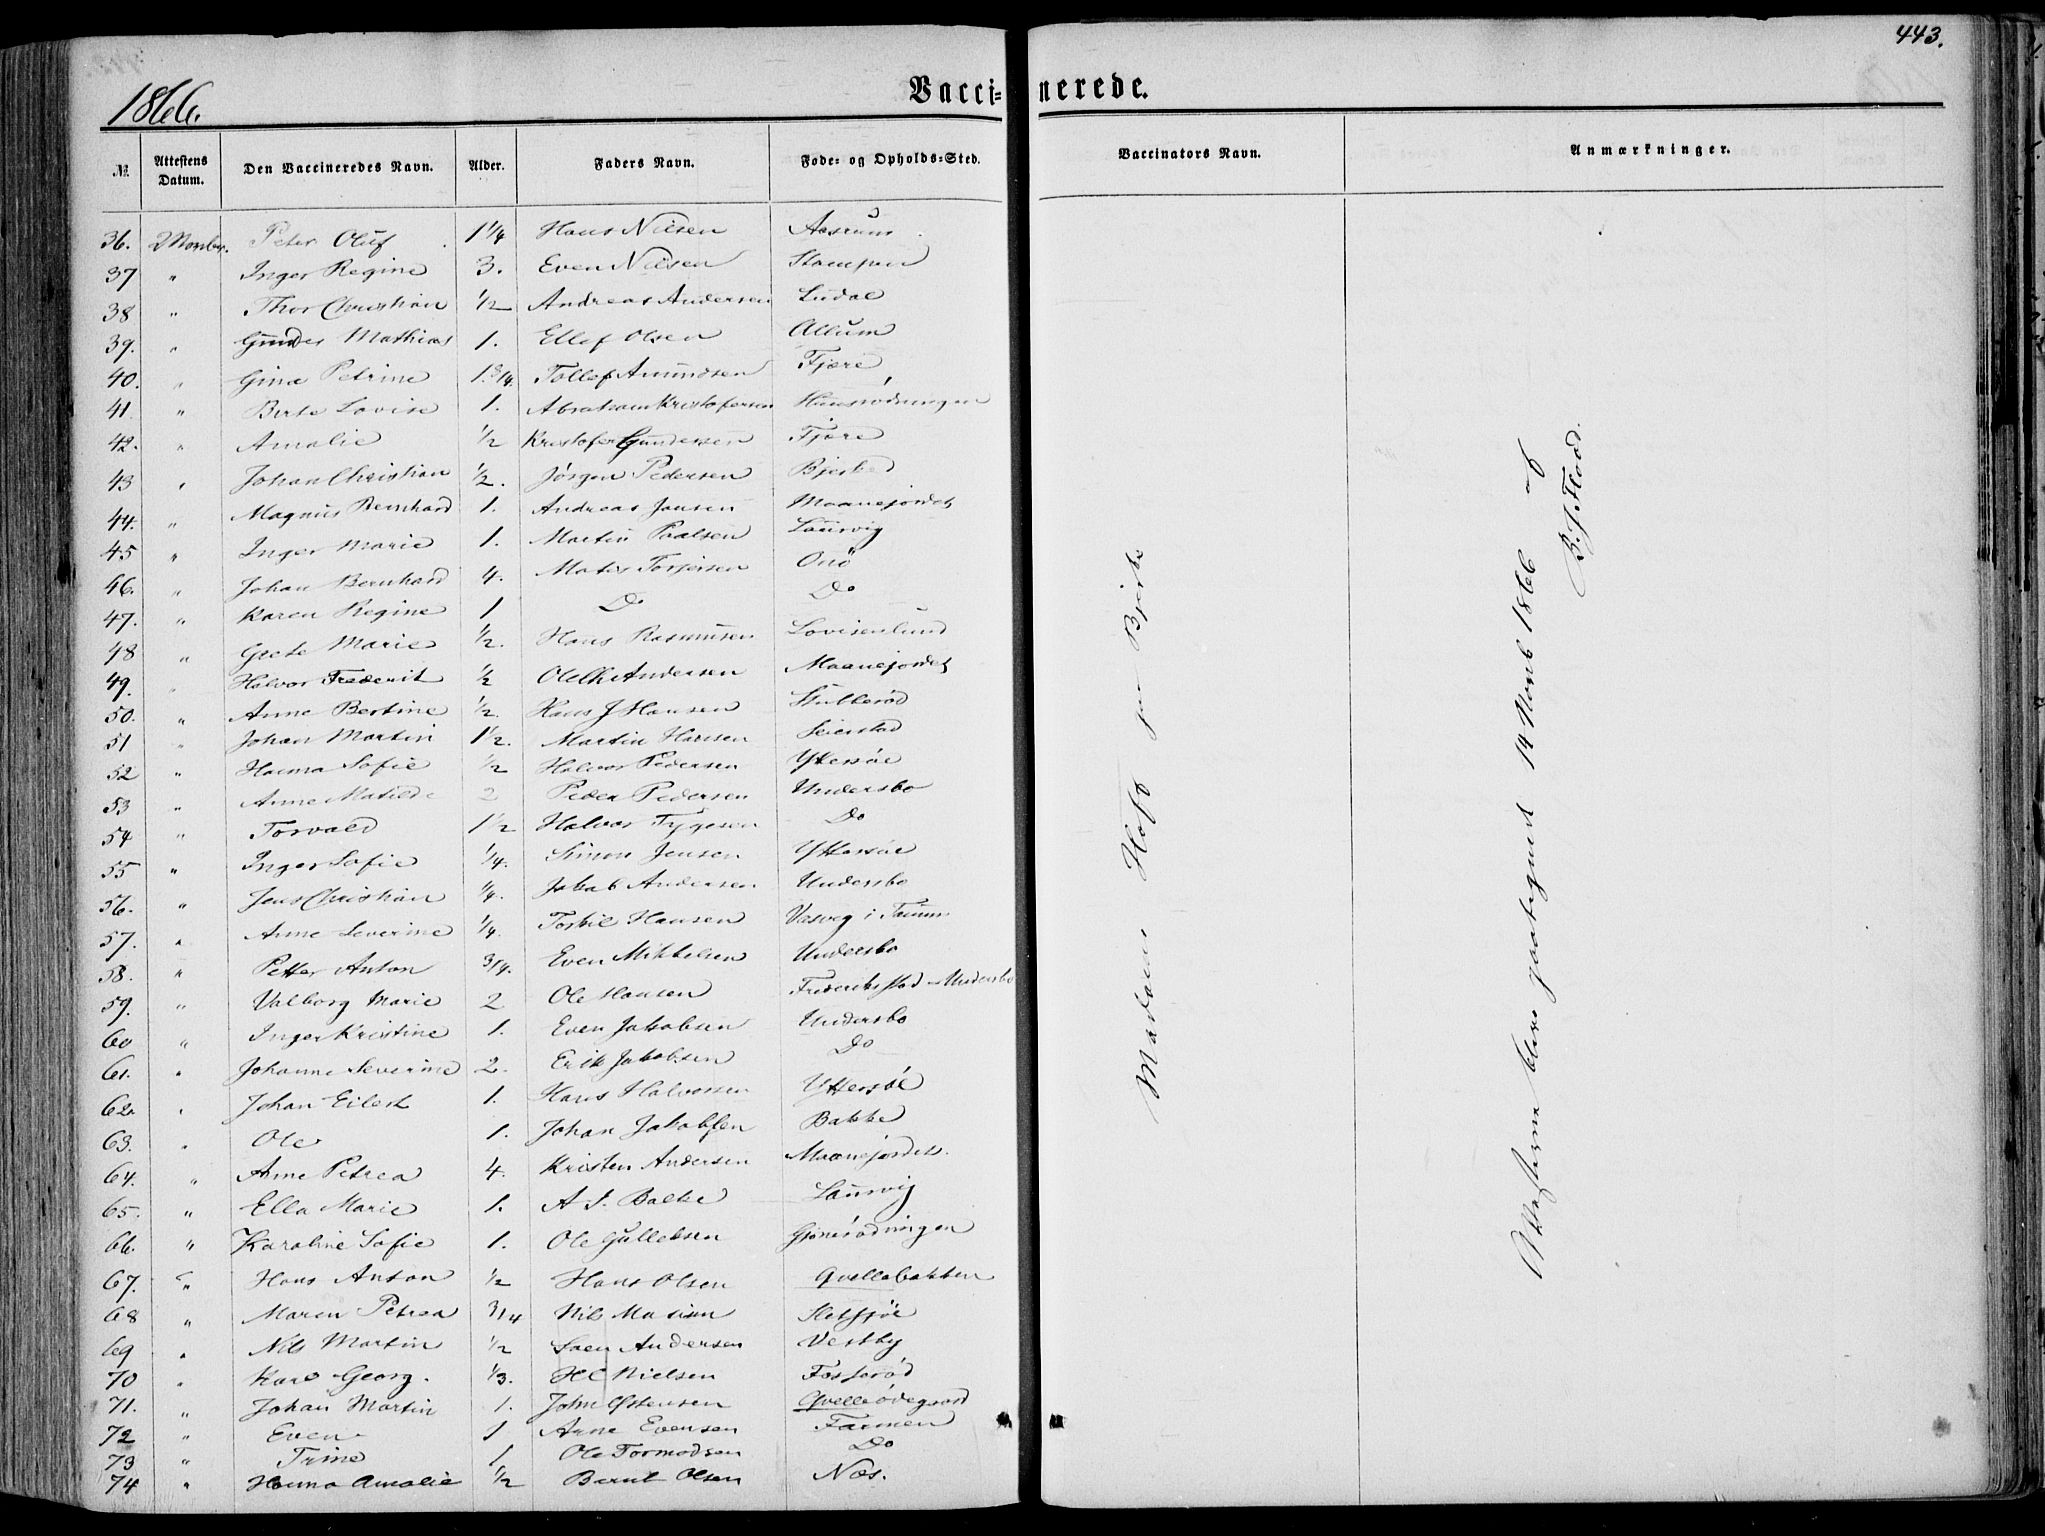 443.
1866.
Vacci= nerede.
№ Attestens Datum. Den Vaccineredes Navn. Alder. Faders Navn. Føde= og Opholds=Sted. Vaccinators Navn. Anmærkninger.
36. 2 Novbr. Peter Oluf 1 1/4 Hans Nilsen Aasrum
37 " Inger Regine 3. Even Nilsen Stampen
38 " Thor Christian 1/2 Andreas Andersen
39. " Gunder Mathias 1. Ellef Olsen Allum
40. " Gina Petrine 1. 3/4. Tollef Amundsen Fjære
41. " Berte Lovise 1. Abraham Kristofersen
42. " Amalie 1/2 Kristofer Gundersen Fjære
43 " Johan Christian 1/2. Jörgen Pedersen
44. " Magnus Bernhard 1. Andreas Jansen Maanejordet
45 " Inger Marie 1. Martin Paalsen Laurvig
46. " Johan Bernhard 4. Mates Torjersen Onö
47. " Karen Regine 1 Do Do
48 " Grete Marie 1/2. Hans Rasmusen Lovisenlund
49. " Halvor Frederik 1/2 Ole Chr Andersen Maanejordet
50. " Anne Bertine 1/2. Hans J Hansen Stubberöd
51 " Johan Martin 1 1/2. Martin Hansen Seierstad
52 " Hanna Sofie 1/2 Halvor Pedersen Yttersöe
53 " Anne Matilde 2 Peder Pedersen Undersbo
54 " Torvald 1 1/2 Halvor Tygesen Do
55 " Inger Sofie 1/4. Simon Jensen Yttersöe
56. " Jens Christian 1/4. Jakob Andersen Undersbo
57. " Anne Severine 1/4. Torkil Hansen Vasveg i Tanum
58. " Petter Anton 3/4. Even Mikkelsen Undersbo
59. " Valborg Marie 2 Ole Hansen Frederikstad - Undersbo
60 " Inger Kristine 1. Even Jakobsen Undersbo
61. " Johanne Severine 2. Erik Jakobsen Do
62. " Johan Eilert 1. Hans Halvorsen Yttersöe
63. " Ole 1. Johan Jakobsen Bakke
64. " Anne Petrea 4. Kristen Andersen Maanejordet.
65. " Ella Marie 1. A. S. Balke Laurvig
66. " Karoline Sofie 1. Ole Gullebsen Gjönnesrödningen
67. " Hans Anton 1/2 Hans Olsen Qvellebakken
68 " Maren Petrea 3/4 Nils Matisen
69 " Nils Martin 1/2 Soen Andersen Vestby
70 " Karl Georg. 1/3. H C Nielsen Fosseröd
71. " Johan Martin 1. John Östensen Qvelleödegaard
72 " Even 1 Arne Evensen Farmen
73 " Trine 1 Ole Tormodsen Do
74 " Hanna Amalie 1/2 Bernt Olsen Næs.
Madam Hoff paa Bjerke
Attesterne blive paategnet 14 Novb 1866 af
B. J. Flood.